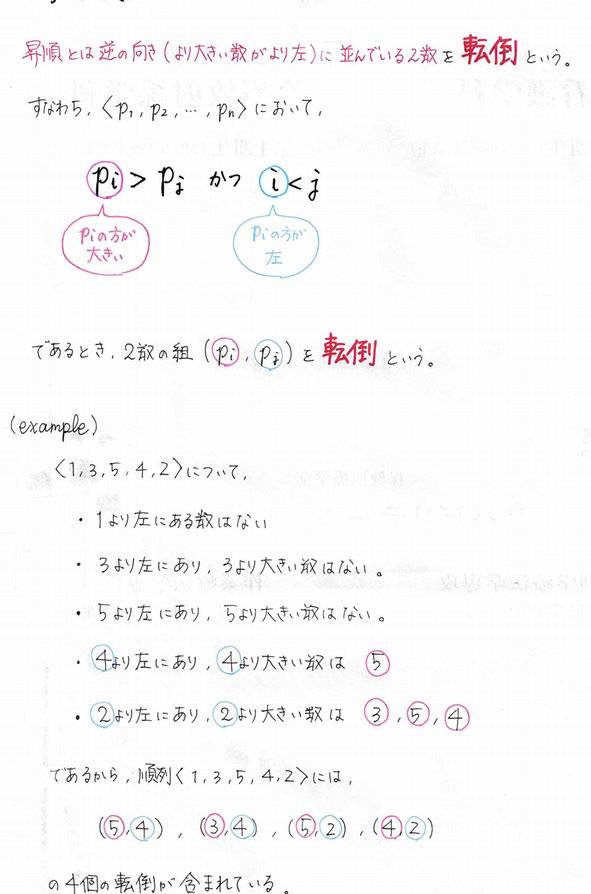 昇順とは逆の向き(より大きい数がより左)に並んでいる2数を転倒という。
すなわち, ⟨p1, p2, …, pn⟩において,
pi > pj かつ i < j
piの方が
大きい
piの方が
左
であるとき, 2数の組 (pi, pj) を 転倒 という。
(example)
⟨1, 3, 5, 4, 2⟩について,
・1より左にある数はない
・3より左にあり, 3より大きい数はない。
・5より左にあり, 5より大きい数はない。
・4より左にあり, 4より大きい数は 5
・2より左にあり, 2より大きい数は 3, 5, 4
であるから, 順列⟨1, 3, 5, 4, 2⟩には,
(5, 4), (3, 4), (5, 2), (4, 2)
の4個の転倒が含まれている。